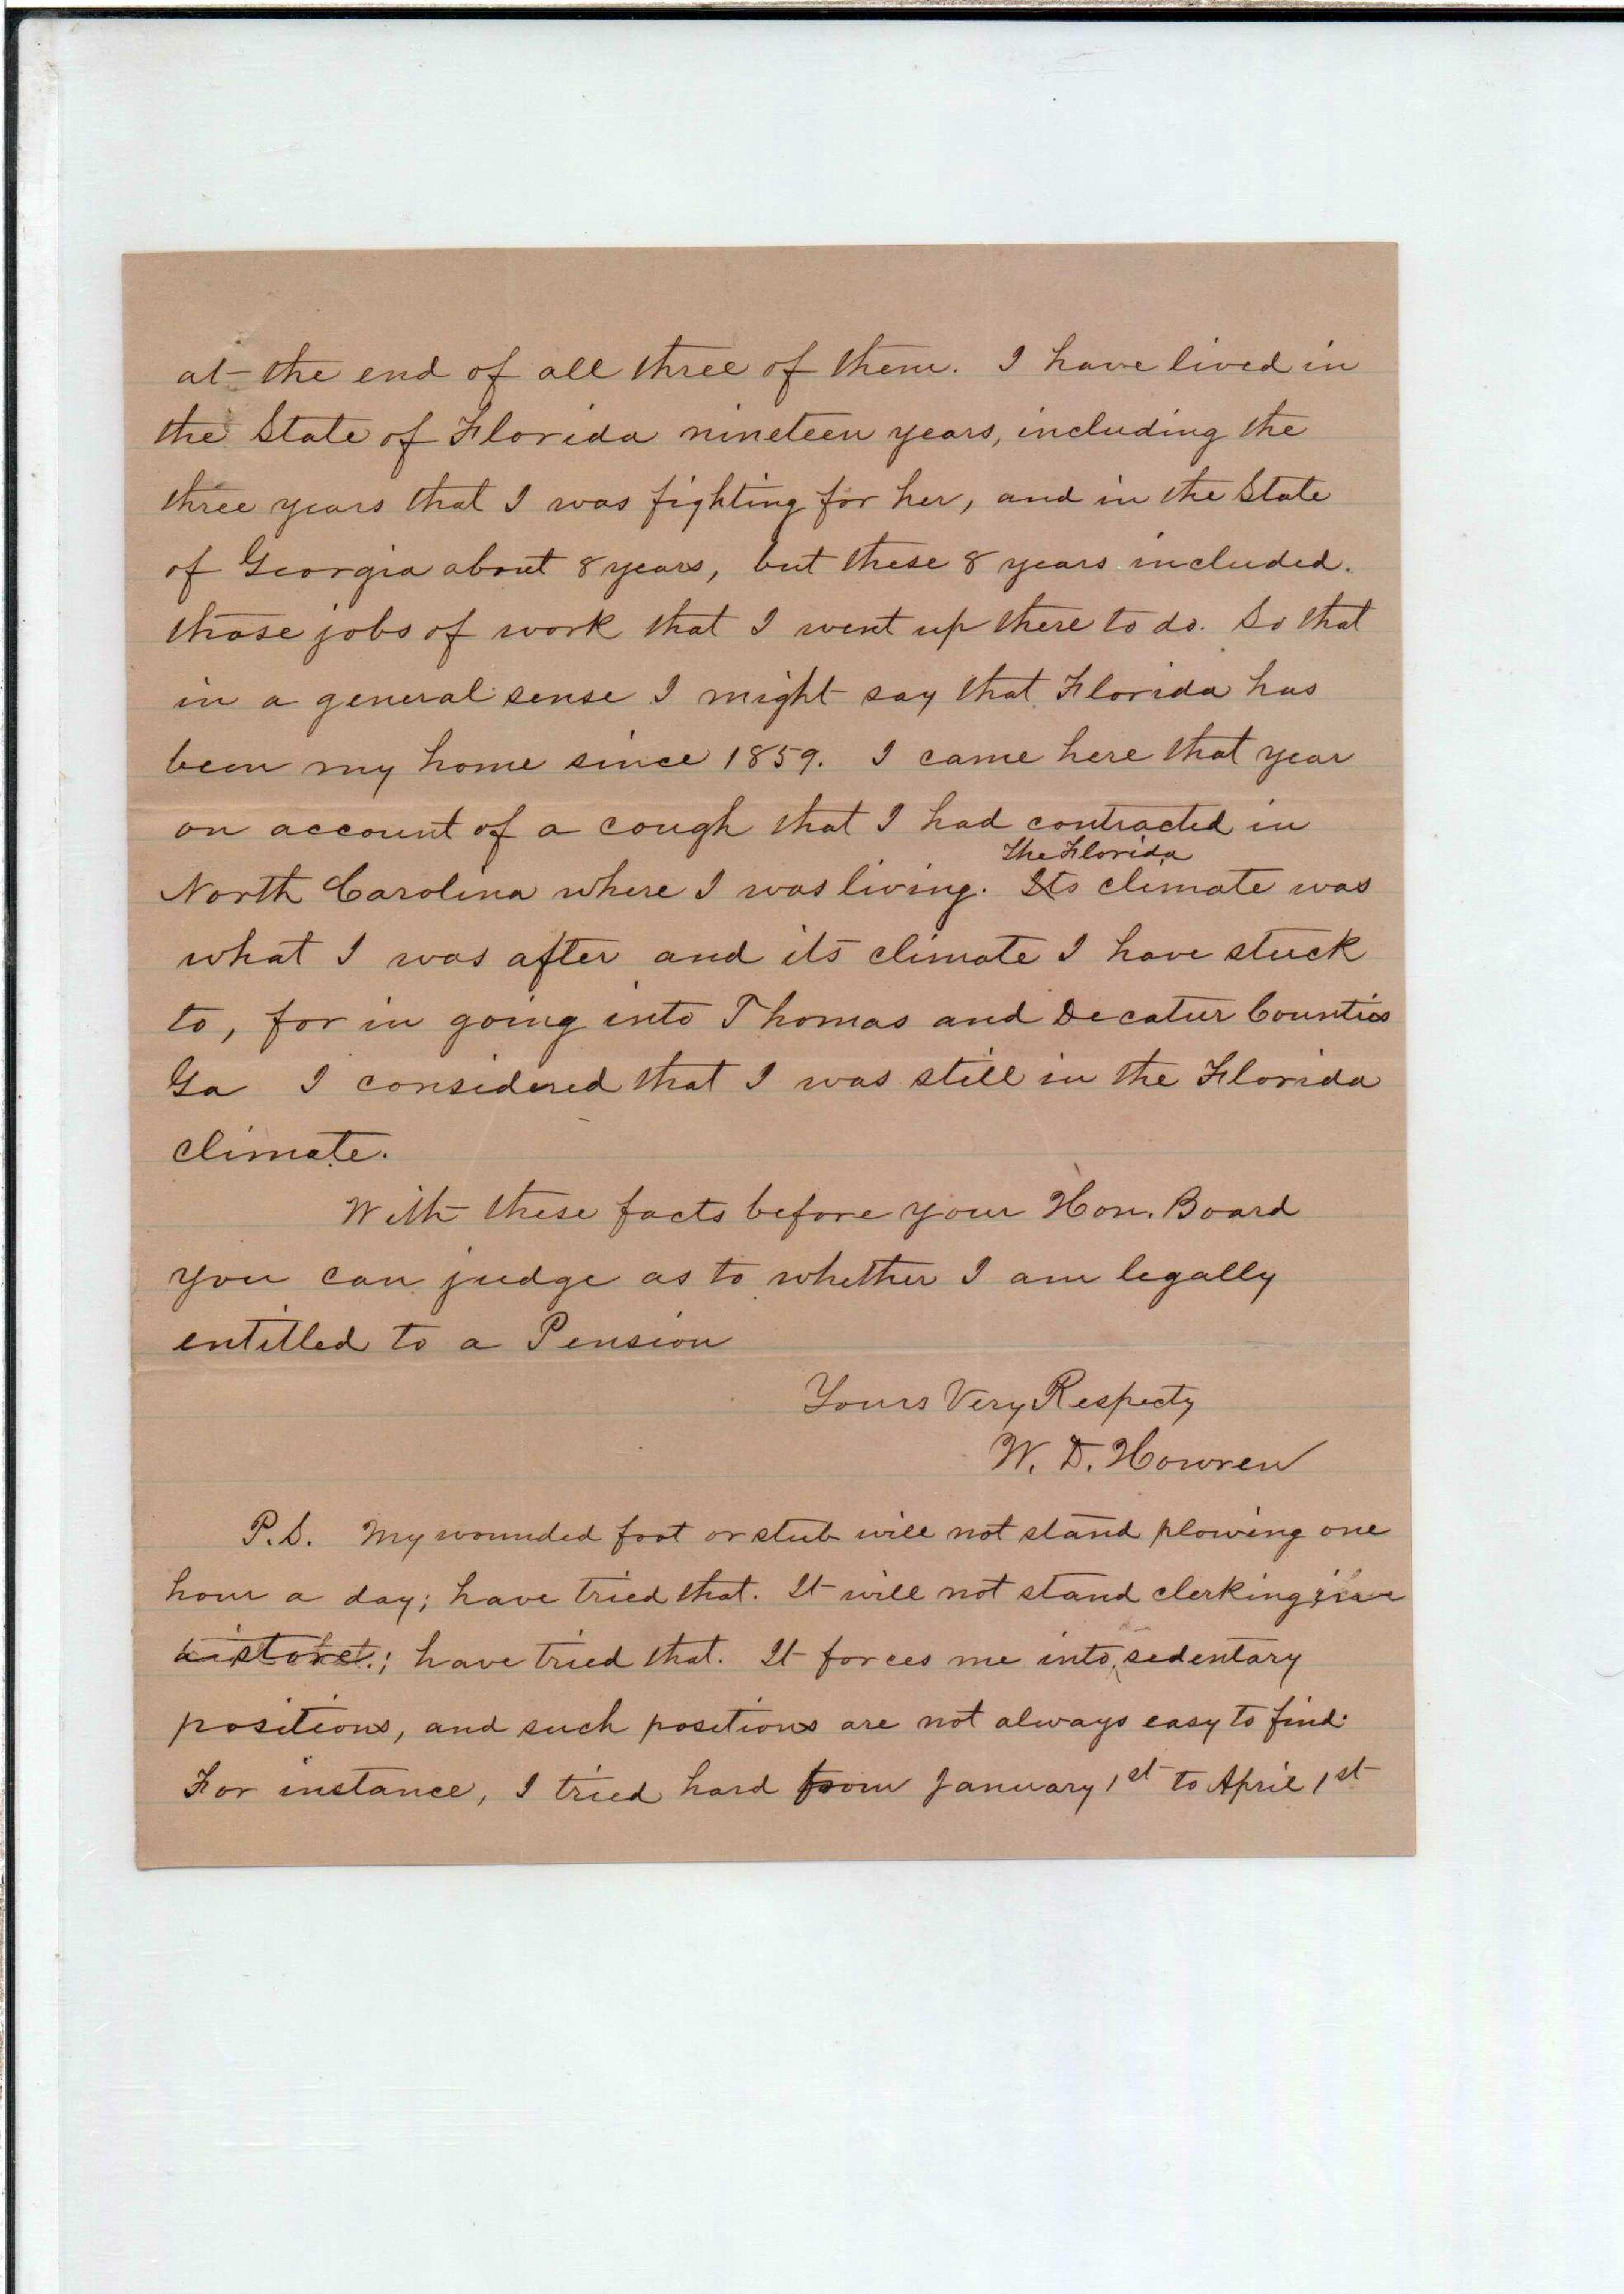 at the end of all three of them. I have lived in
the State of Florida nineteen years, including the
three years that I was fighting for her, and in the State
of Georgia about 8 years, but these 8 years included
those jobs of work that I went up there to do. So that
in a general sense I might say that Florida has
been my home since 1859. I came here that year
on account of a cough that I had contracted in
The Florida
North Carolina where I was living. Its climate was
what I was after and its climate I have stuck
to, for in going into Thomas and Decatur Counties
Ga I considered that I was still in the Florida
climate.
With these facts before your Hon. Board
you can judge as to whether I am legally
entitled to a Pension
Yours Very Respecty
W. D. Howren
P.S. My wounded foot or stub will not stand plowing one
hour a day; have tried that. It will not stand clerking in
a store.; have tried that. It forces me into sedentary
positions, and such positions are not always easy to find.
For instance, I tried hard from January 1st to April 1st